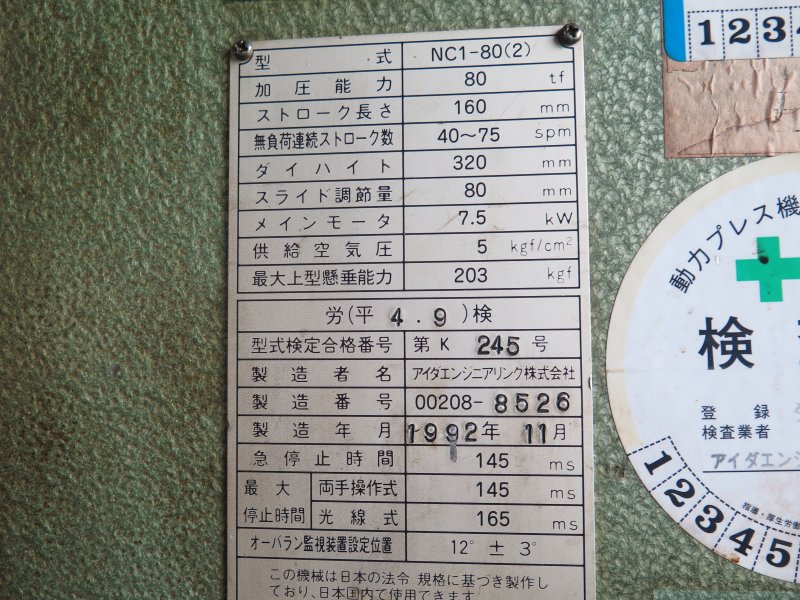 型 式 NC1-80(2)
加 圧 能 力 80 tf
ストローク長さ 160 mm
無負荷連続ストローク数 40〜75 spm
ダ イ ハ イ ト 320 mm
スライド調節量 80 mm
メインモータ 7.5 kW
供 給 空 気 圧 5 kgf/cm²
最大上型懸垂能力 203 kgf
労(平 4.9)検
型式検定合格番号 第 K 245 号
製 造 者 名 アイダエンジニアリング株式会社
製 造 番 号 00208-8526
製 造 年 月 1992年 11月
急 停 止 時 間 145 ms
最 大 両手操作式 145 ms
停止時間 光 線 式 165 ms
オーバラン監視装置設定位置 12° ± 3°
この機械は日本の法令 規格に基づき製作し
ており、日本国内で使用できます
1 2 3
動力プレス機
検
登 録
検査業者
アイダエンジ
1 2 3 4 5
指連・厚生労働